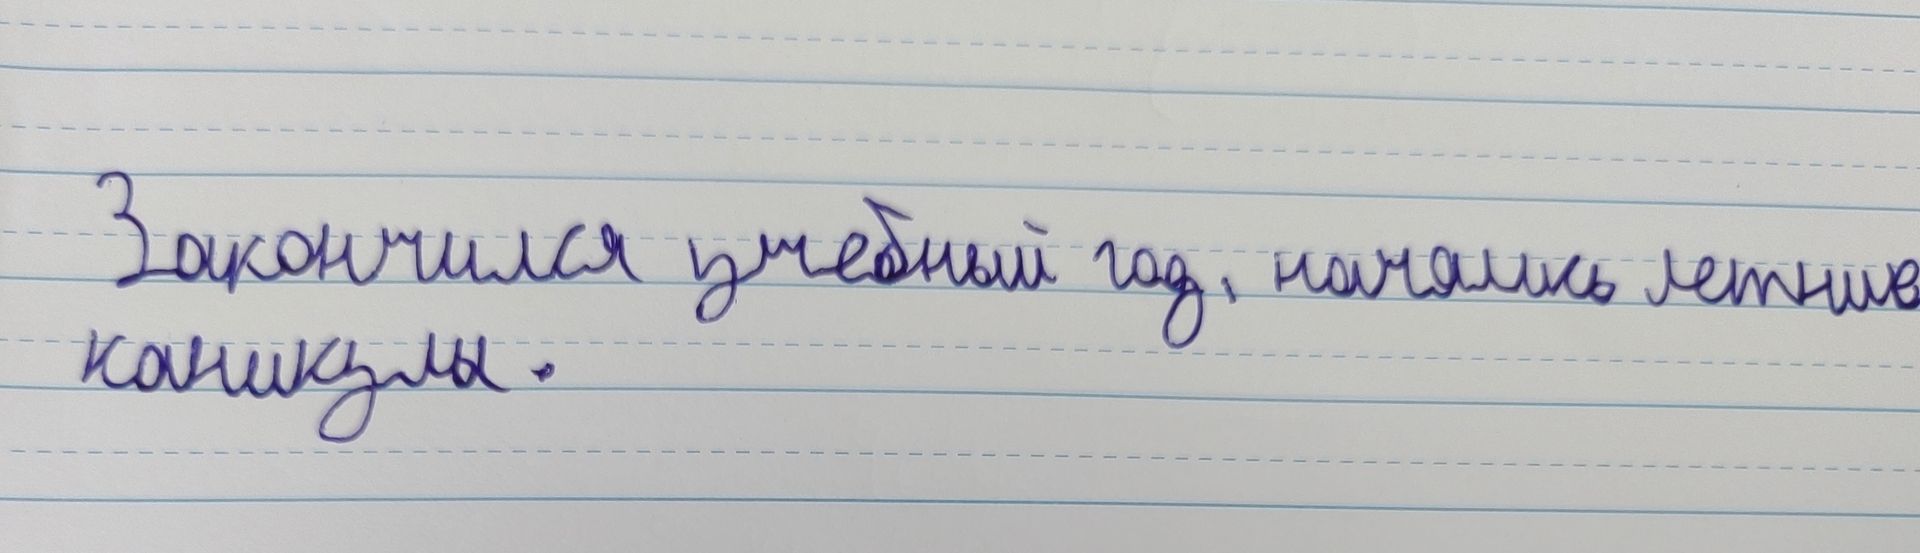 Закончился учебный год, начались летние
каникулы.